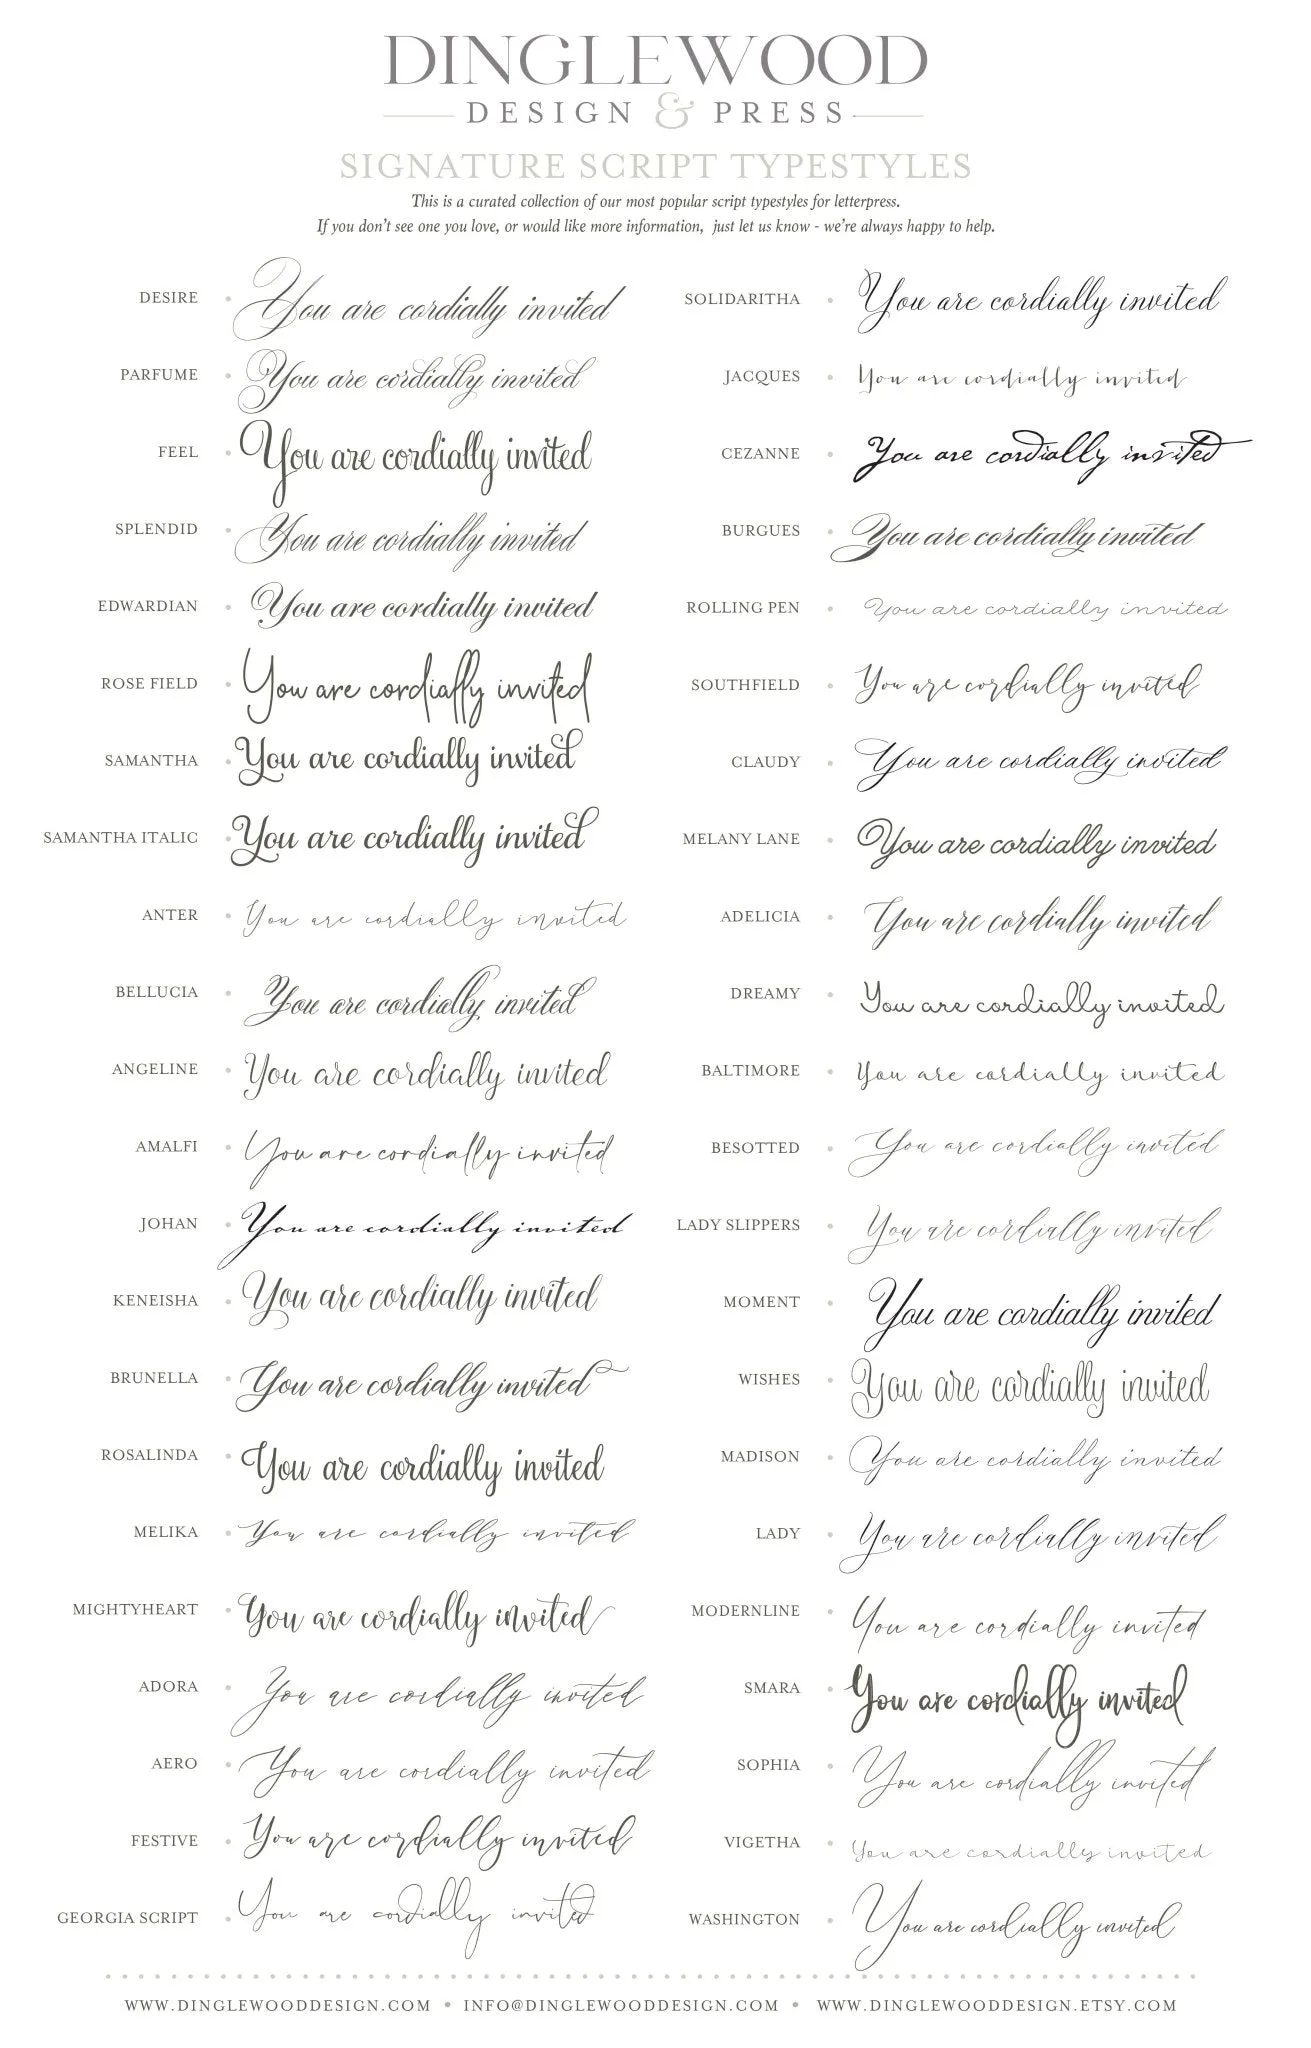 DINGLEWOOD
DESIGN & PRESS
SIGNATURE SCRIPT TYPESTYLES
This is a curated collection of our most popular script typestyles for letterpress.
If you don't see one you love, or would like more information, just let us know - we're always happy to help.
DESIRE • You are cordially invited
PARFUME • You are cordially invited
FEEL • You are cordially invited
SPLENDID • You are cordially invited
EDWARDIAN • You are cordially invited
ROSE FIELD • You are cordially invited
SAMANTHA • You are cordially invited
SAMANTHA ITALIC • You are cordially invited
ANTER • You are cordially invited
BELLUCIA • You are cordially invited
ANGELINE • You are cordially invited
AMALFI • You are cordially invited
JOHAN • You are cordially invited
KENEISHA • You are cordially invited
BRUNELLA • You are cordially invited
ROSALINDA • You are cordially invited
MELIKA • You are cordially invited
MIGHTYHEART • You are cordially invited
ADORA • You are cordially invited
AERO • You are cordially invited
FESTIVE • You are cordially invited
GEORGIA SCRIPT • You are cordially invited
SOLIDARITHA • You are cordially invited
JACQUES • You are cordially invited
CEZANNE • You are cordially invited
BURGUES • You are cordially invited
ROLLING PEN • You are cordially invited
SOUTHFIELD • You are cordially invited
CLAUDY • You are cordially invited
MELANY LANE • You are cordially invited
ADELICIA • You are cordially invited
DREAMY • You are cordially invited
BALTIMORE • You are cordially invited
BESOTTED • You are cordially invited
LADY SLIPPERS • You are cordially invited
MOMENT • You are cordially invited
WISHES • You are cordially invited
MADISON • You are cordially invited
LADY • You are cordially invited
MODERNLINE • You are cordially invited
SMARA • You are cordially invited
SOPHIA • You are cordially invited
VIGETHA • You are cordially invited
WASHINGTON • You are cordially invited
WWW.DINGLEWOODDESIGN.COM • INFO@DINGLEWOODDESIGN.COM • WWW.DINGLEWOODDESIGN.ETSY.COM